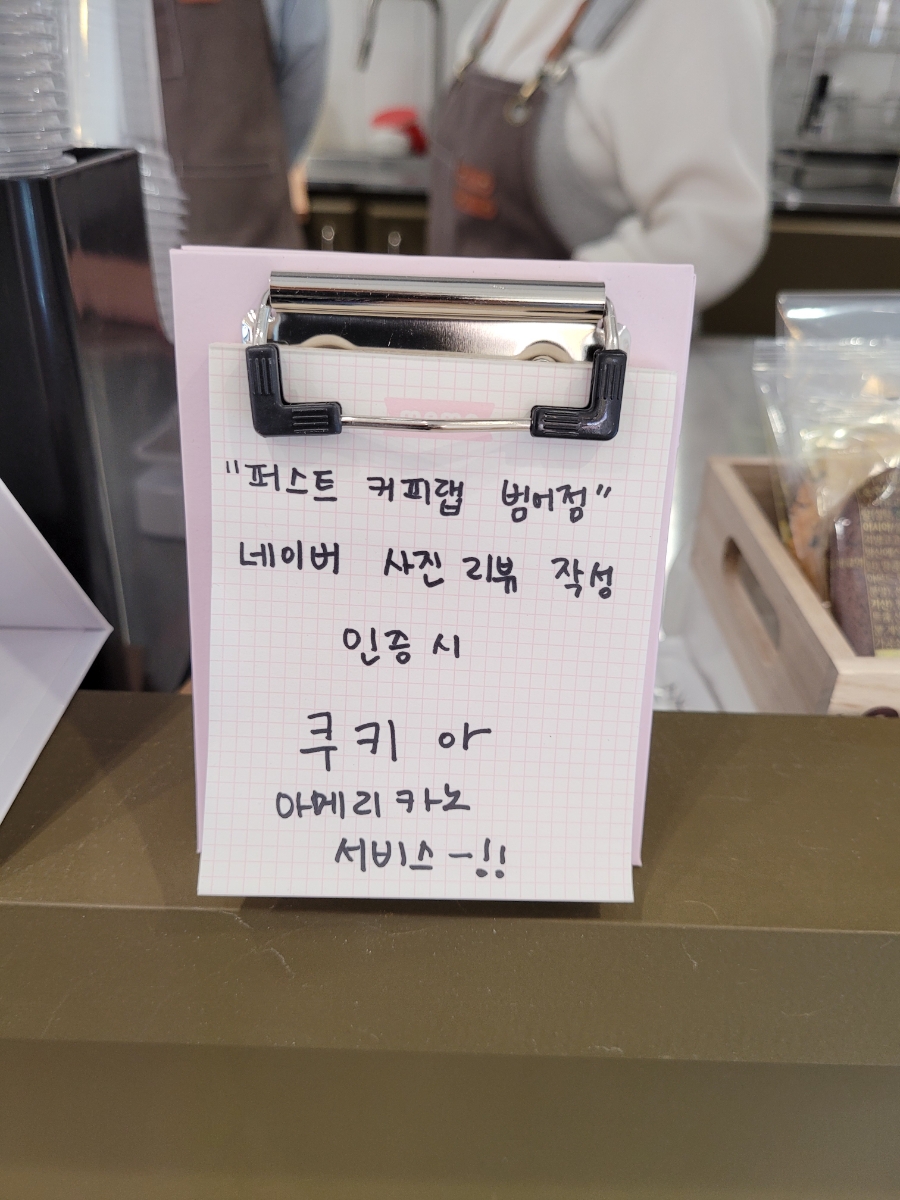 "퍼스트 커피랩 범어점"
네이버 사진 리뷰 작성
인증 시
쿠키 아
아메리카노
서비스-!!